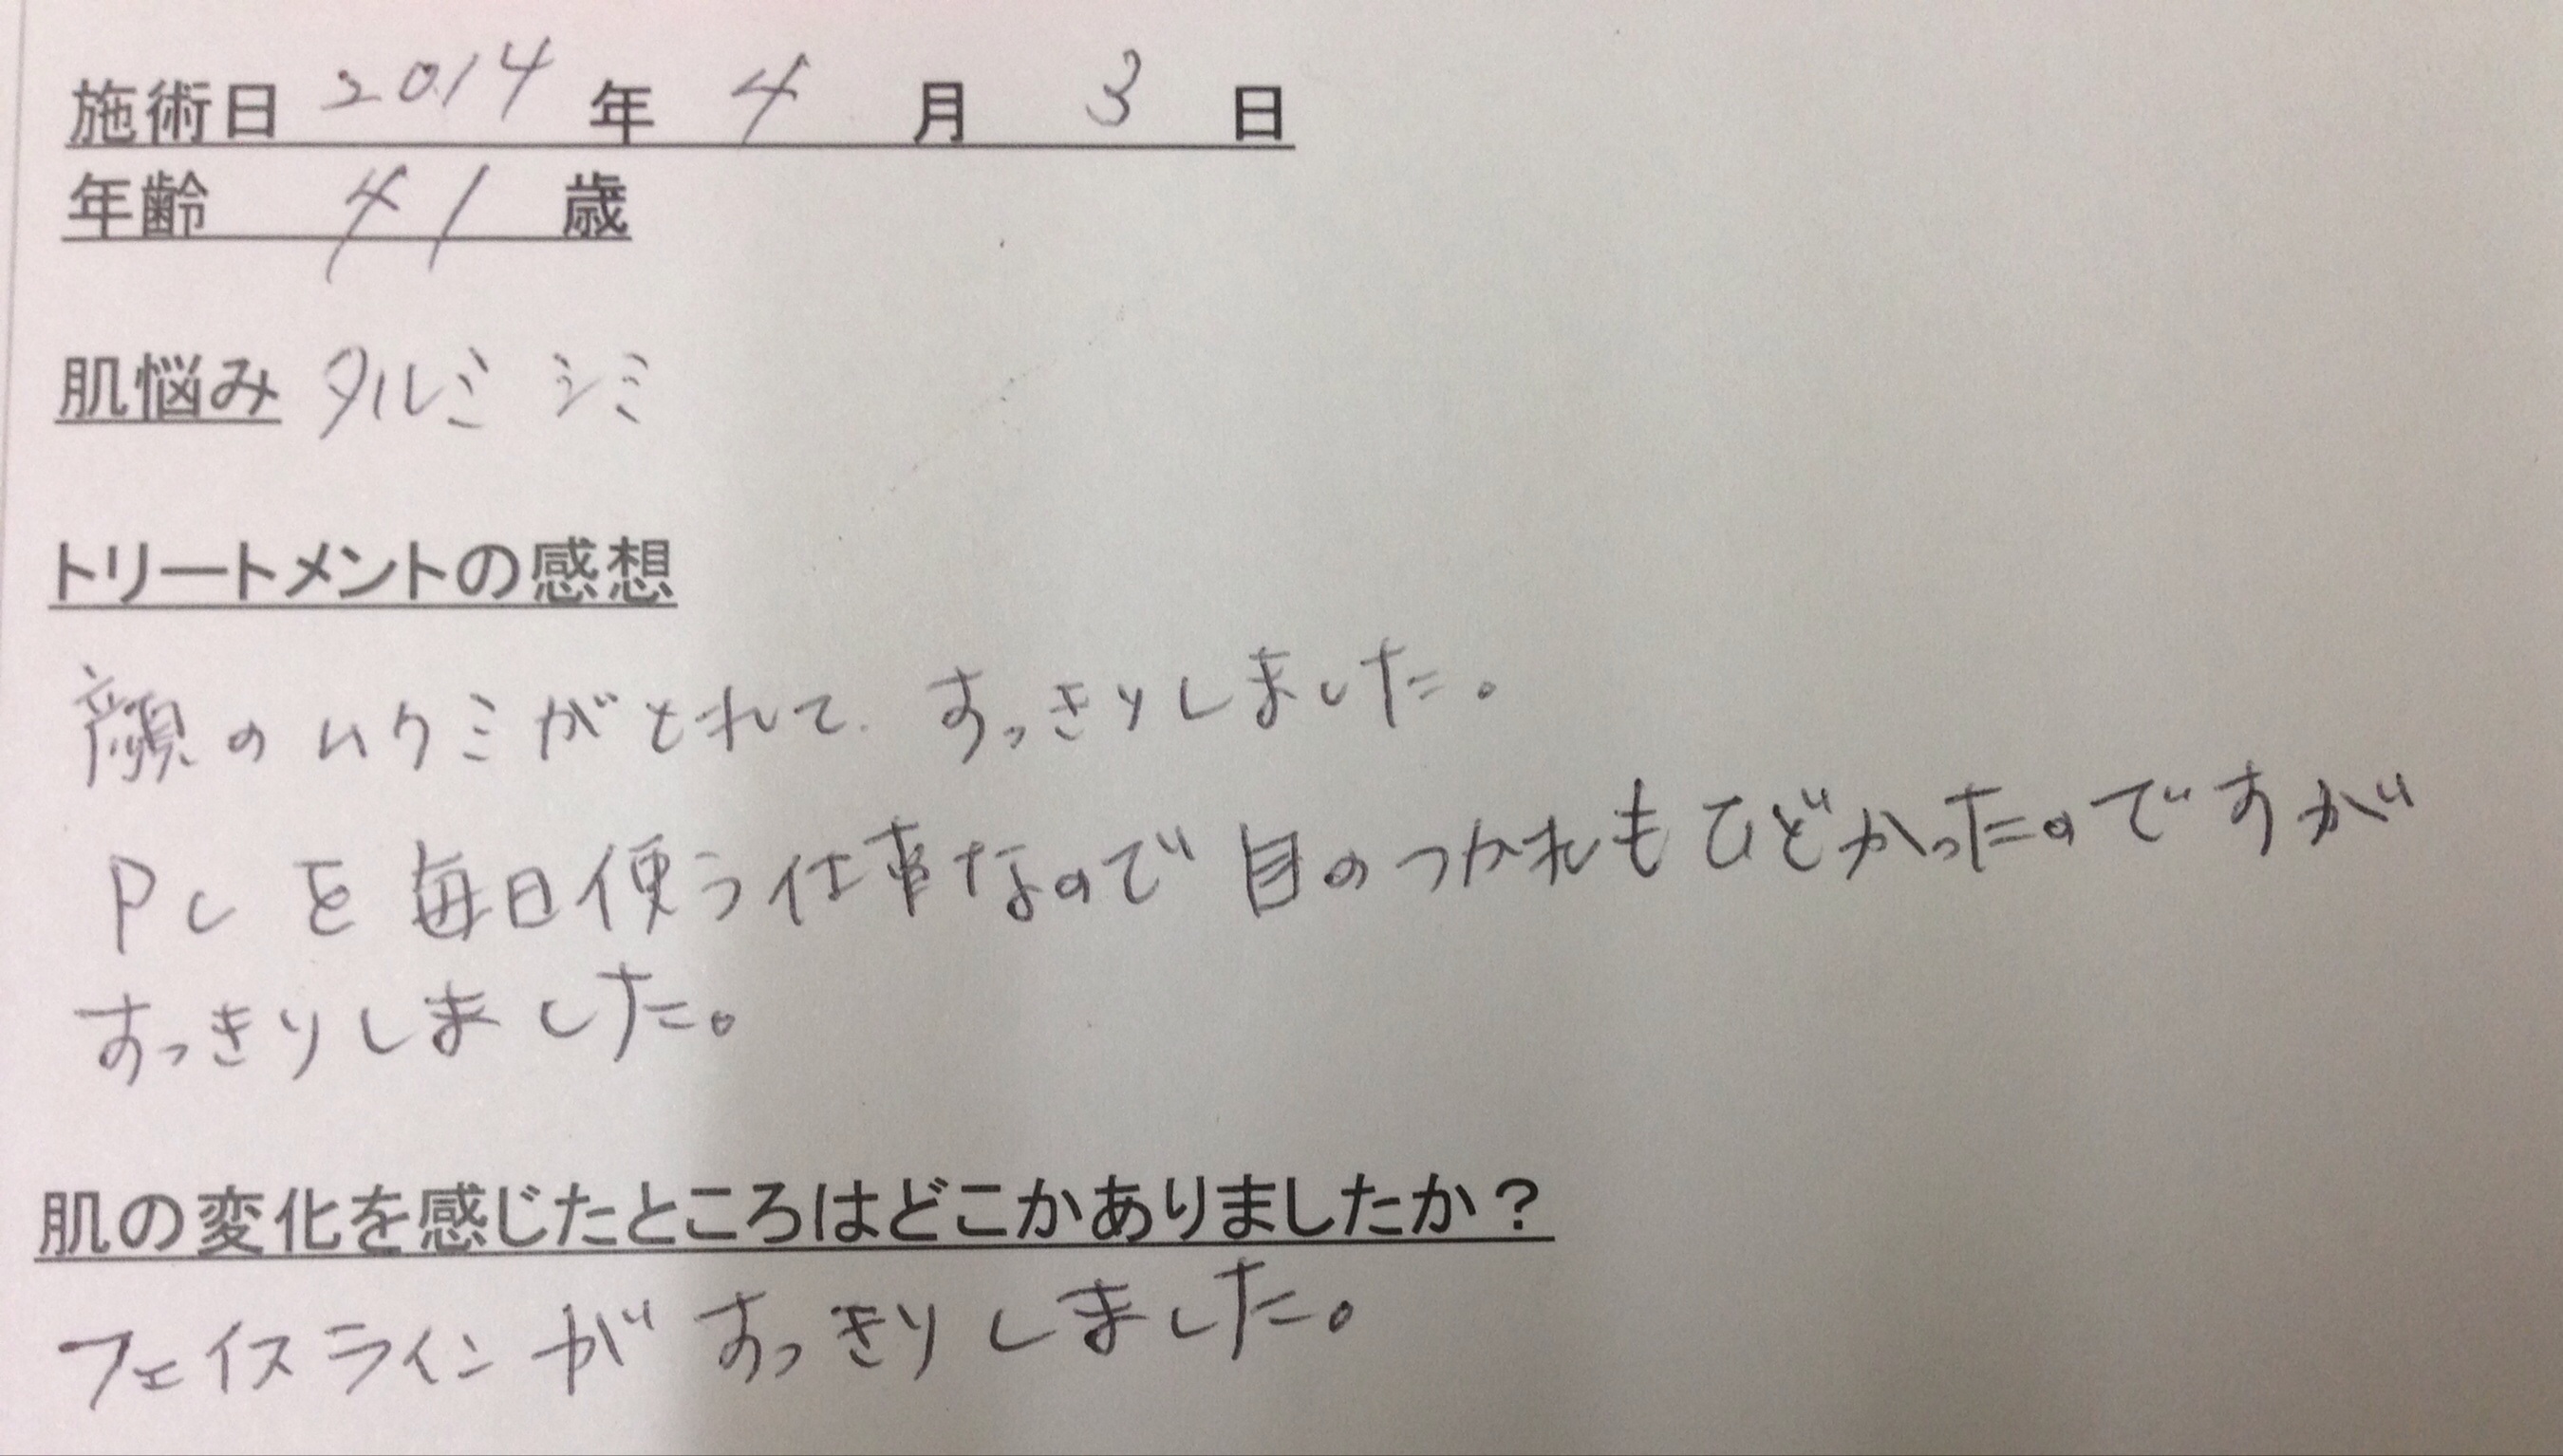 施術日 2014 年 4 月 3 日
年齢 41 歳
肌悩み タルミ シミ
トリートメントの感想
顔のムクミがとれて、すっきりしました。
PCを毎日使う仕事なので目のつかれもひどかったのですが
すっきりしました。
肌の変化を感じたところはどこかありましたか？
フェイスラインがすっきりしました。